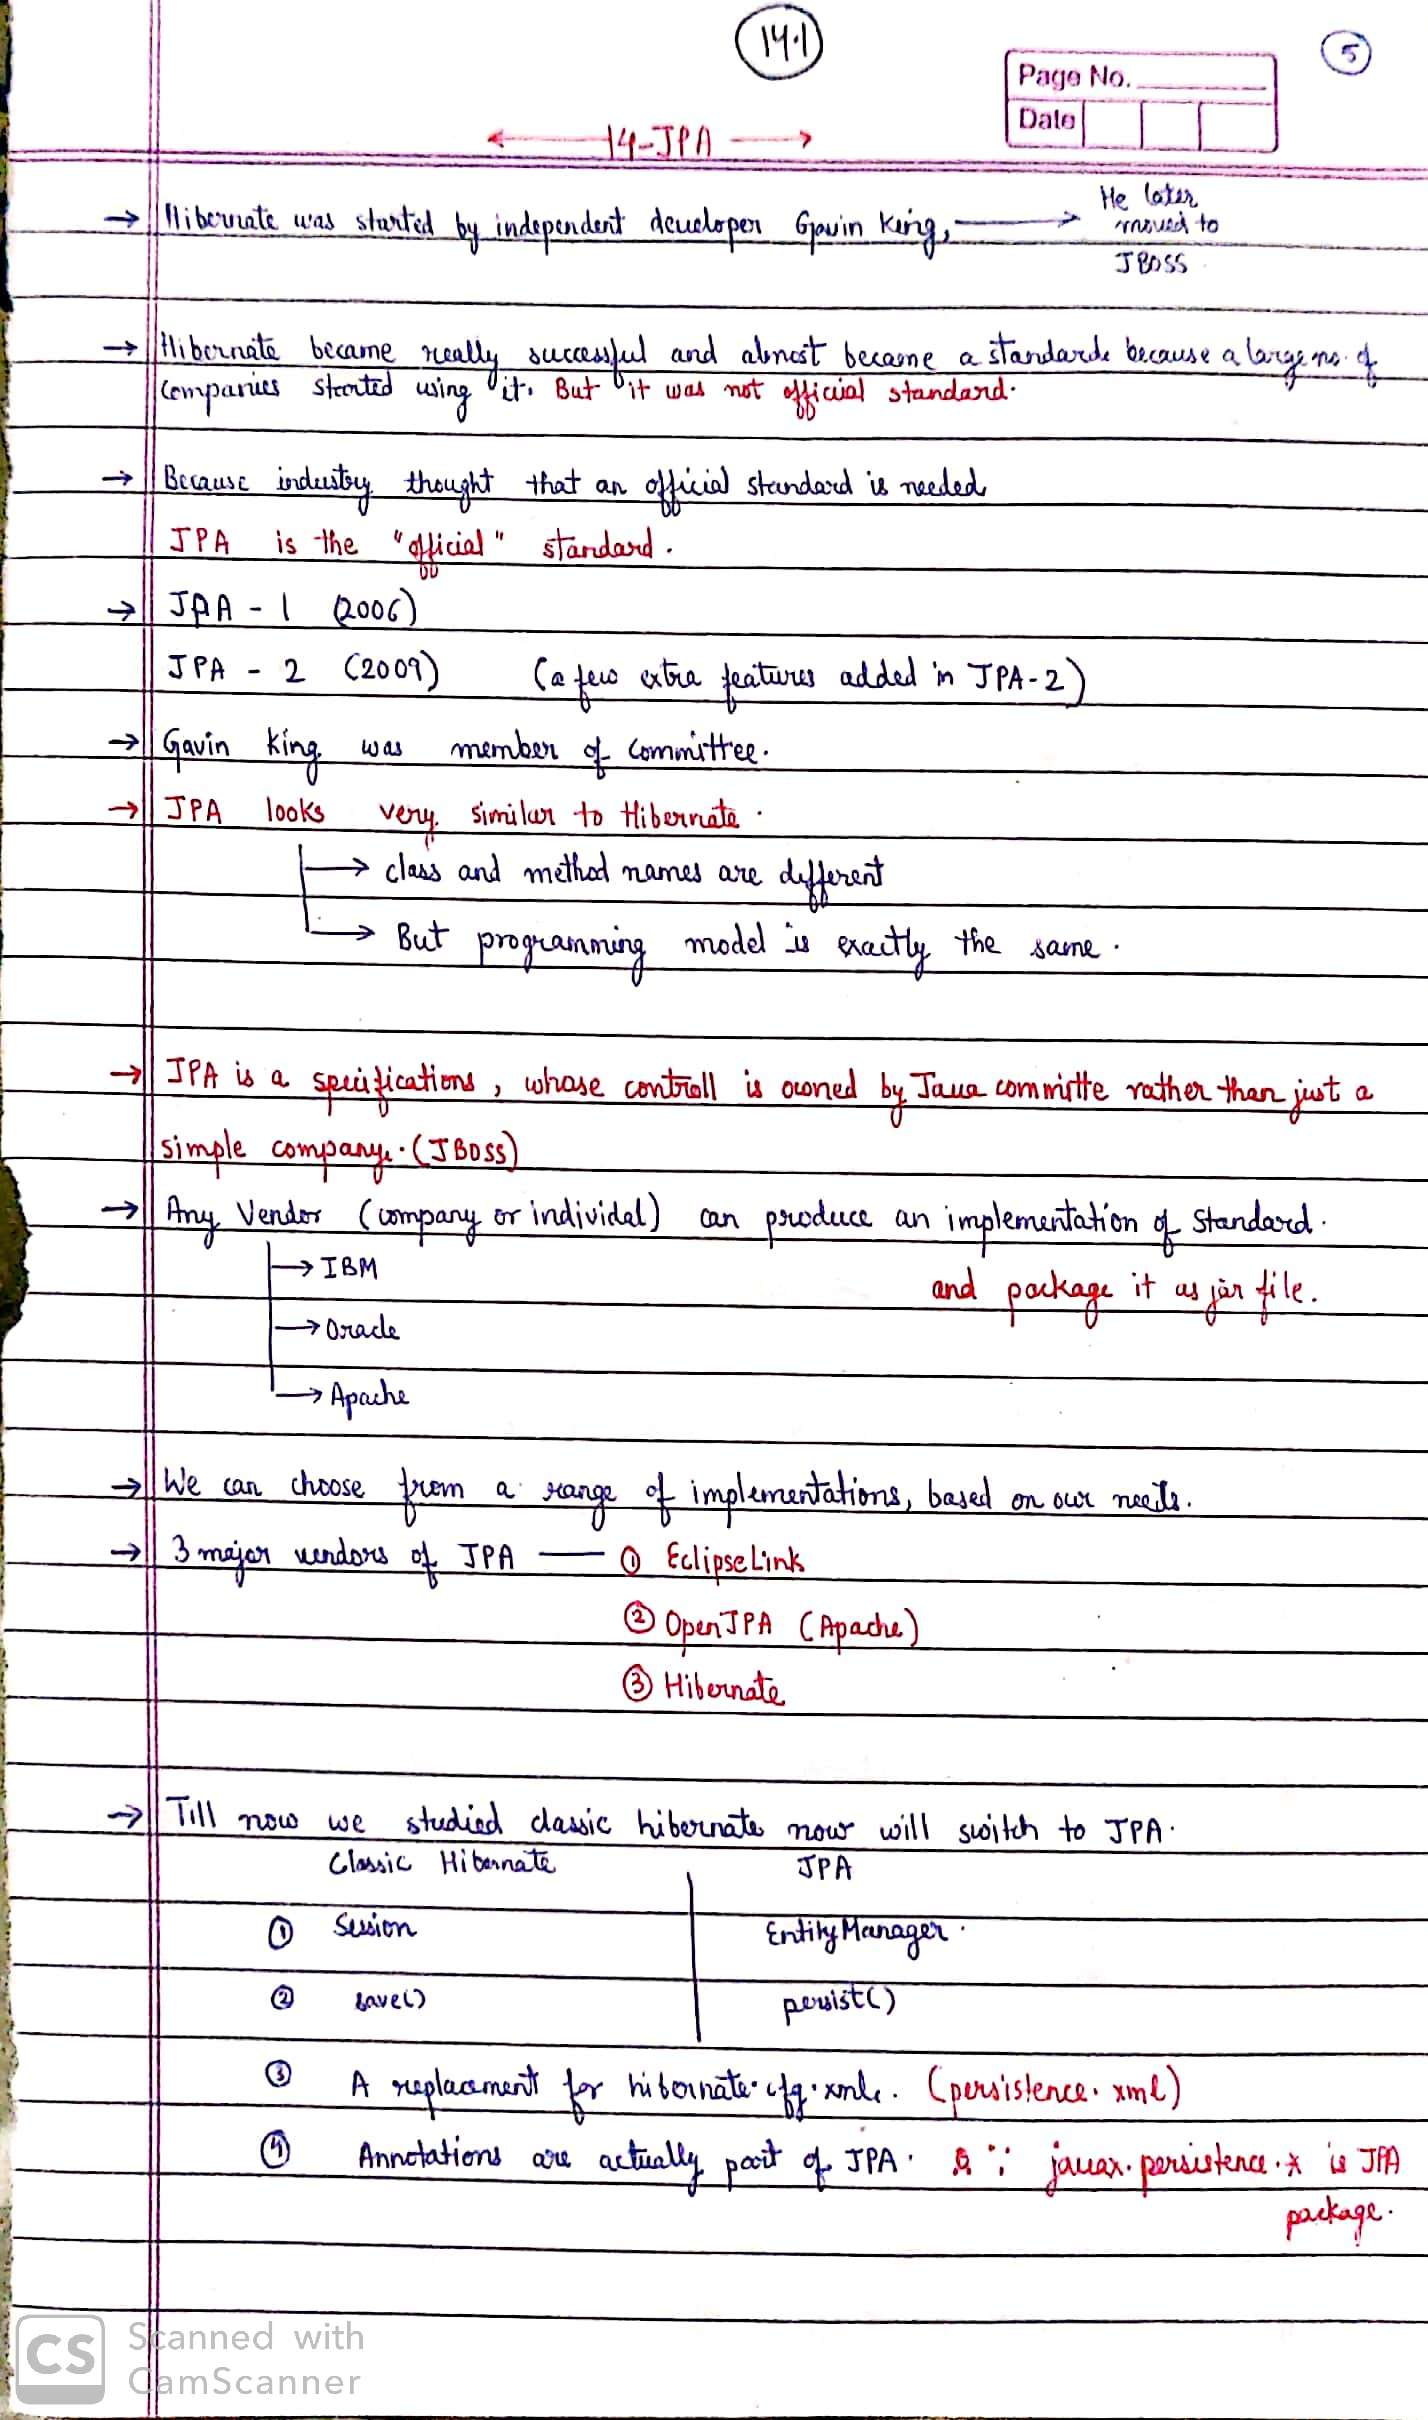 14.1
5
Page No.
Date
14-JPA
→ Hibernate was started by independent developer Gavin King, → He later
moved to
JBOSS
→ Hibernate became really successful and almost became a standard because a large no. of
companies started using it. But it was not official standard.
→ Because industry thought that an official standard is needed
JPA is the "official" standard.
→ JPA - 1 (2006)
JPA - 2 (2009) (a few extra features added in JPA-2)
→ Gavin King was member of committee.
→ JPA looks very similar to Hibernate.
→ class and method names are different
→ But programming model is exactly the same.
→ JPA is a specifications, whose controll is owned by Java committe rather than just a
simple company. (JBoss)
→ Any Vendor (company or individal) can produce an implementation of standard.
→ IBM
and package it as jar file.
→ Oracle
→ Apache
→ We can choose from a range of implementations, based on our needs.
→ 3 major vendors of JPA — ① EclipseLink
② OpenJPA (Apache)
③ Hibernate
→ Till now we studied classic hibernate now will switch to JPA.
Classic Hibernate JPA
① Session EntityManager.
② save() persist()
③ A replacement for hibernate.cfg.xml. (persistence.xml)
④ Annotations are actually part of JPA. ∵ javax.persistence.* is JPA
package.
CS
Scanned with
CamScanner